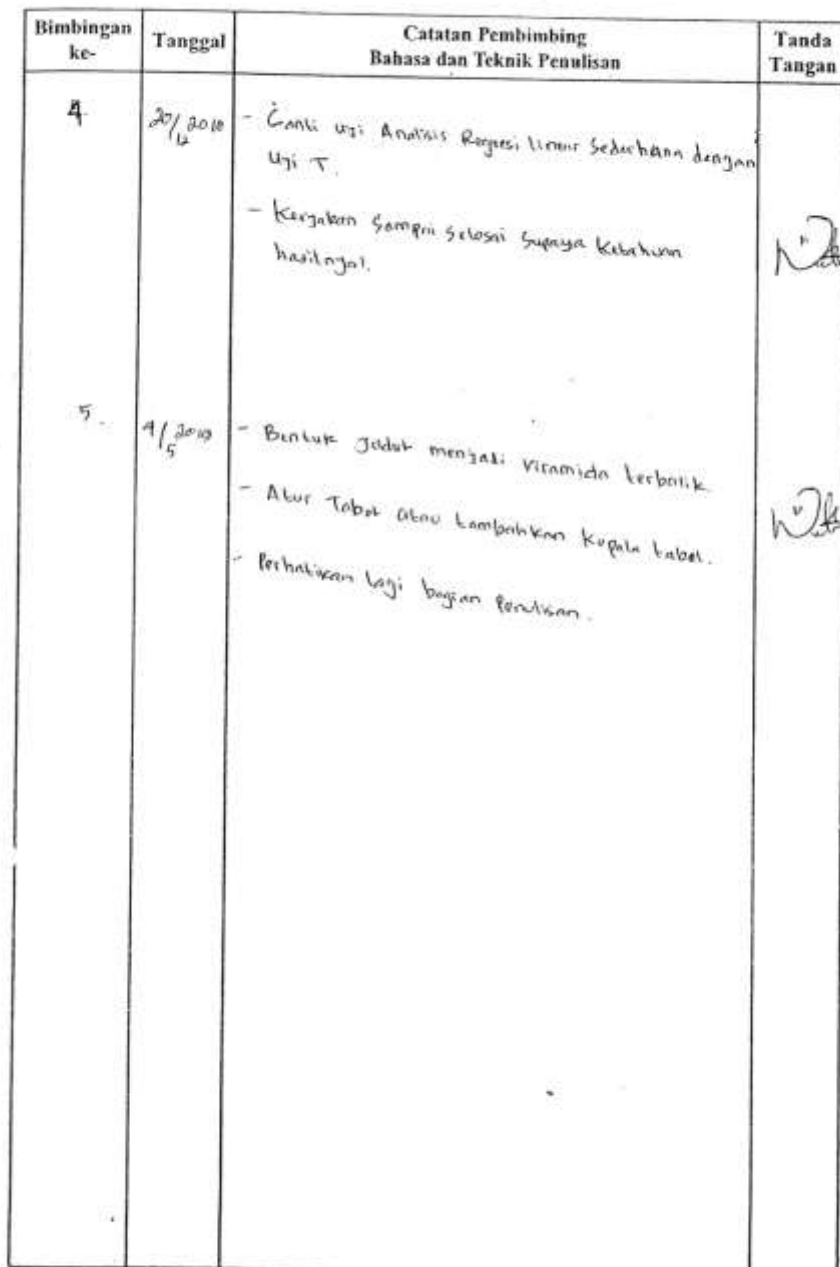 Bimbingan ke-
Tanggal
Catatan Pembimbing
Bahasa dan Teknik Penulisan
Tanda Tangan
4
20/12 2018
- Ganti Uji Analisis Regresi linear Sederhana dengan
Uji T.
- Kerjakan Sampai Selesai Supaya Ketahuan
hasilnya.
5.
4/5 2019
- Bentuk Judul menjadi Piramida terbalik
- Atur Tabel atau tambahkan Kepala tabel.
- Perhatikan lagi bagian Penulisan.